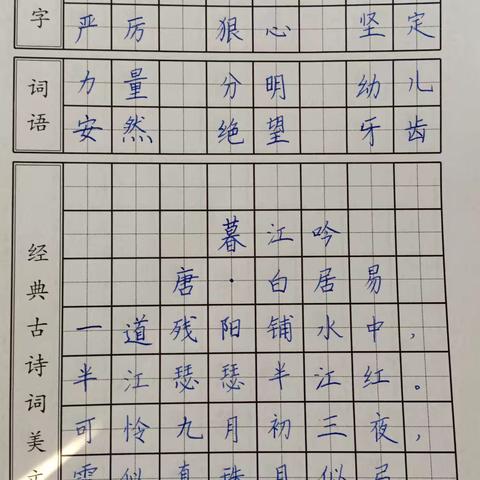 字
严厉 狠心 坚定
词语
力量 分明 幼儿
安然 绝望 牙齿
经典古诗词美文
暮江吟
唐·白居易
一道残阳铺水中，
半江瑟瑟半江红。
可怜九月初三夜，
露似真珠月似弓